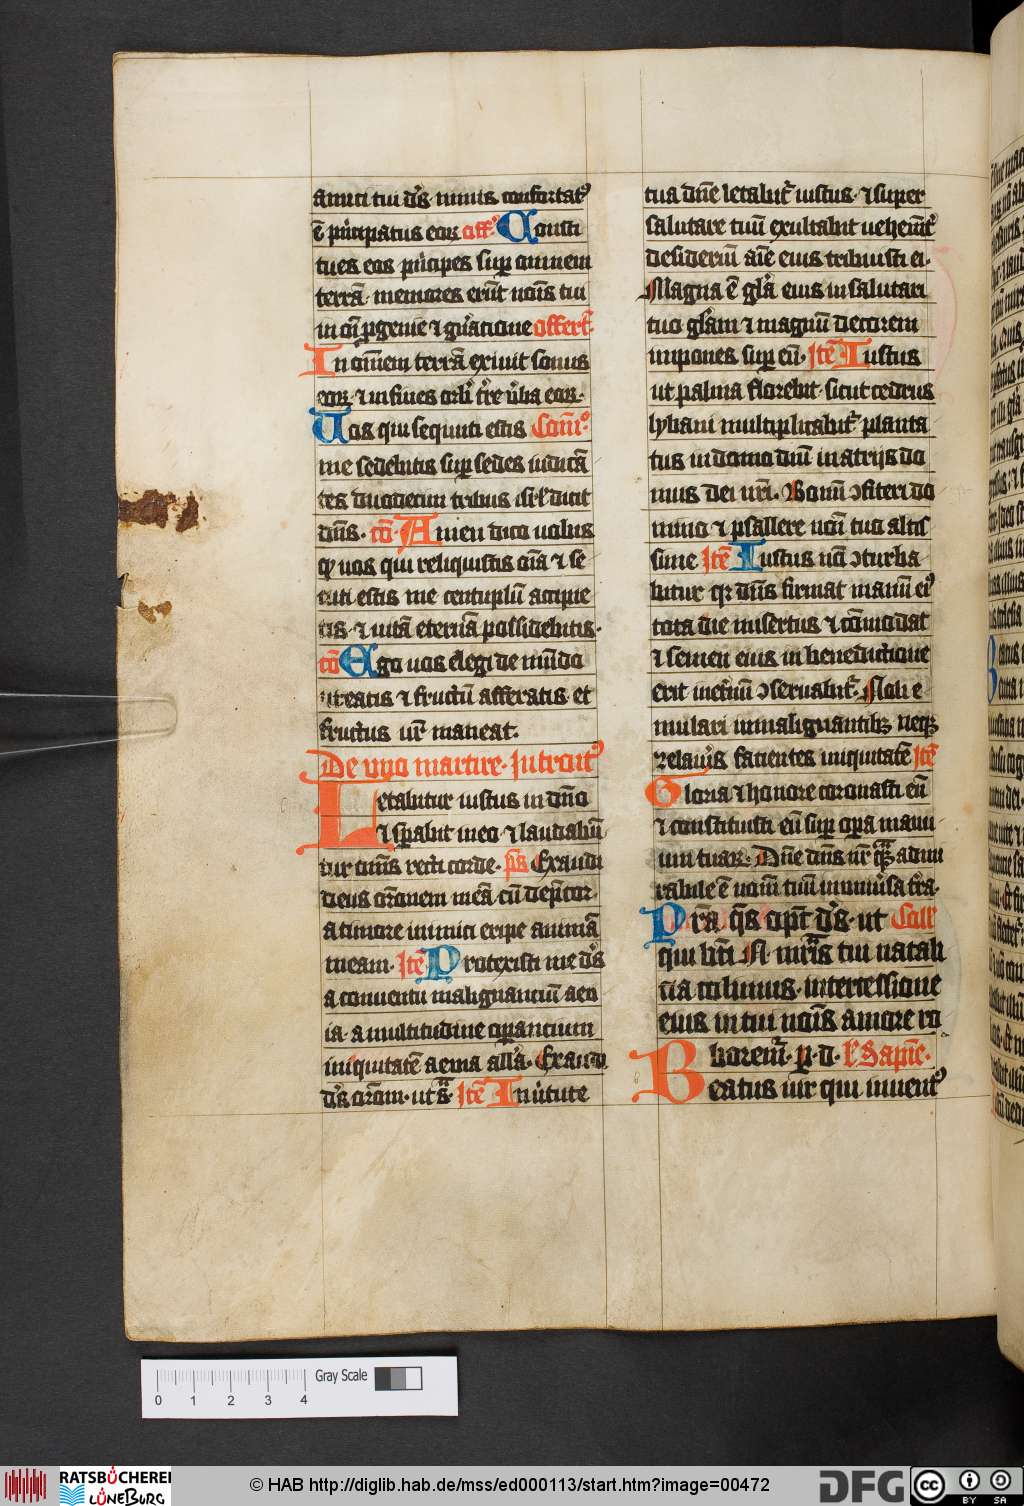 amici tui ds̄. nimis confortatꝰ
ē pͥncipatus eoꝝ off̄. Consti
tues eos pͥncipes suꝑ omnem
terrā. memores erūt noīs tui
in oī ꝓgenie ⁊ gn̄atione offert̄.
In om̄em terrā exiuit sonus
eoꝝ. ⁊ in fines orbꝭ tr̄e v̄ba eoꝝ.
Uos qui secuti estis Com̄o.
me sedebitis suꝑ sedes iudicā
tes duodecim tribus isrl̄ dicit
dn̄s. cō. Amen dico uobis
ꝙ uos qui reliquistis oīa ⁊ se
cuti estis me centuplū accipie
tis. ⁊ uitā eternā possidebitis.
cō Ego uos elegi de mūdo
ut eatis ⁊ fructū afferatis. et
fructus ur̄ maneat.
De uno martire. Introitꝰ
Letabitur iustus in dn̄o
⁊ sꝑabit in eo. ⁊ laudabūt
tur om̄s recti corde. ps̄ Exaudi
deus oroͣnem meā cū dep̄cor.
a timore inimici eripe animā
meam. Itē Protexisti me ds̄
a conuentu malignanciū aeu
ia. a multitudine oꝑantium
iniquitatē aeuia all̄a. Exaudi
ds̄ oroͣm. ut sͣ. Itē In uͥtute
tua dn̄e letabit̄ iustus. ⁊ super
salutare tuū exultabit uehemēt̄
desideriū aīe eius tribuisti ei.
Magna ē gl̄a eius in salutari
tuo gl̄am ⁊ magnū decorem
impones suꝑ eū. Itē Iustus
ut palma florebit. sicut cedrus
lybani multiplicabit̄ planta
tus in domo dn̄i in atrijs do
mus dei nr̄i. Bonū ꝯfiteri do
mino ⁊ psallere noī tuo altis
sime Itē Iustus nō ꝯturba
bitur qꝛ dn̄s firmat manū eiꝰ
tota die misertus ⁊ cōmodat
⁊ semen eius in benedictione
erit inet̄nū ꝯseruabit̄. Noli e
mulari in malignantibꝫ neqꝫ
zelauꝭs facientes iniquitatē Itē
Gloria ⁊ honore coronasti eū
⁊ constituisti eū suꝑ oꝑa manu
um tuaꝝ. Dn̄e dn̄s nr̄ qͣꝫ admi
rabile ē nomē tuū in uniū̓sa tr̄a.
Pr̄a qs̄ op̄t ds̄. ut Coll̄
qui bt̄i N. mr̄is tui natali
cia colimus. intercessione
eius in tui noīs amore ro
boremꝰ. ꝑ. d. l̄. Sapīe.
Beatus uir qui inuenitꝰ
Gray Scale
0 1 2 3 4
RATSBÜCHEREI
LÜNEBURG
© HAB http://diglib.hab.de/mss/ed000113/start.htm?image=00472
DFG
cc
BY SA